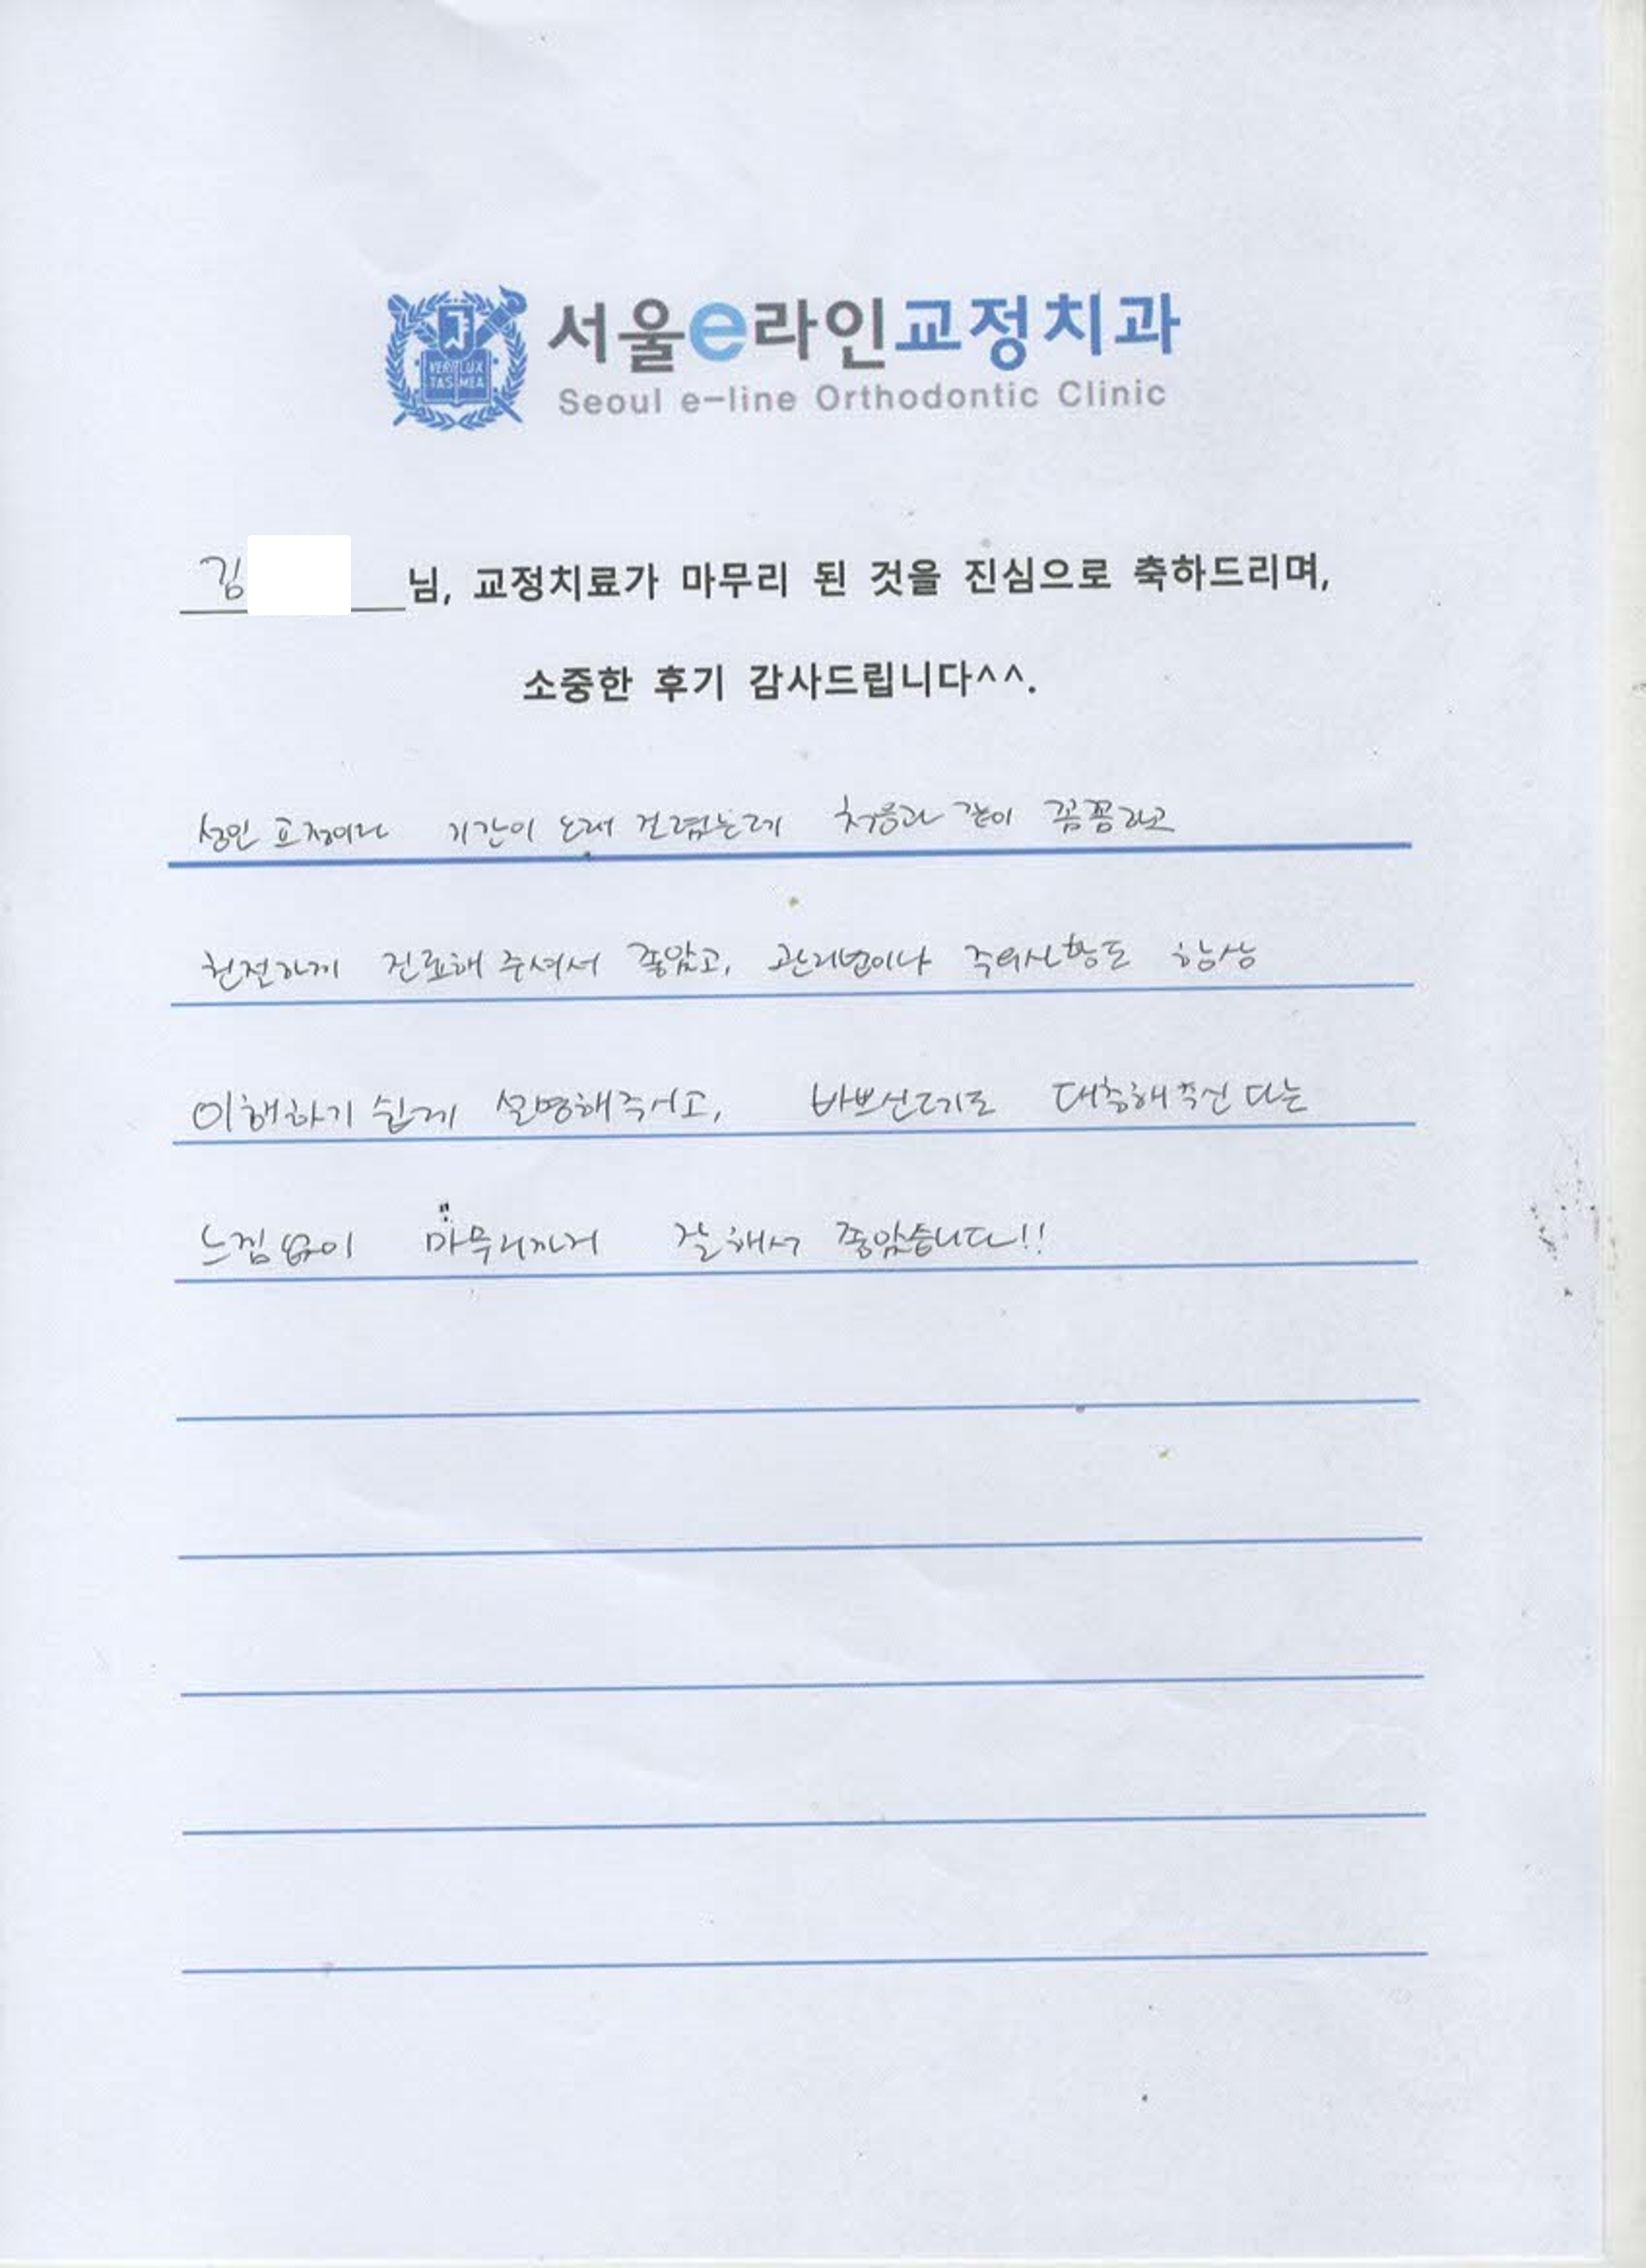 VERI LUX
TAS MEA
서울e라인교정치과
Seoul e-line Orthodontic Clinic
김 님, 교정치료가 마무리 된 것을 진심으로 축하드리며,
소중한 후기 감사드립니다^^.
성인 교정이라 기간이 오래 걸렸는데 처음과 같이 꼼꼼하고
친절하게 진료해 주셔서 좋았고, 관리법이나 주의사항도 항상
이해하기 쉽게 설명해주시고, 바쁘신데도 대충해주신다는
느낌없이 마무리까지 잘해서 좋았습니다!!